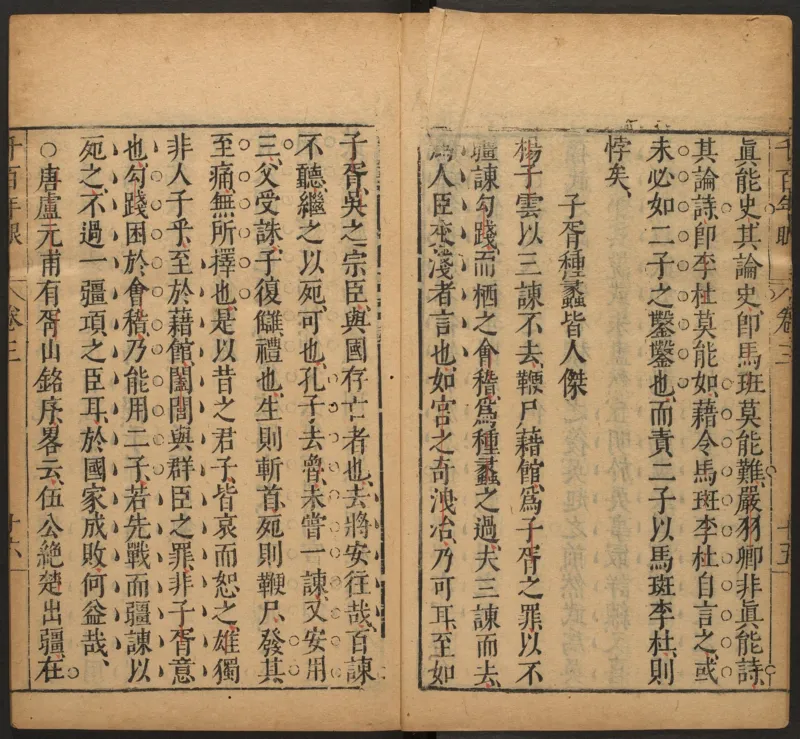 千百年眼
卷三
十五
眞能史其論史卽馬班莫能難嚴羽卿非眞能詩
其論詩卽李杜莫能如藉令馬班李杜自言之或
未必如二子之鑿鑿也而責二子以馬班李杜則
悖矣
子胥種蠡皆人傑
楊子雲以三諫不去鞭尸藉館爲子胥之罪以不
彊諫勾踐而栖之會稽爲種蠡之過夫三諫而去
爲人臣交淺者言也如宮之奇洩冶乃可耳至如
子胥吳之宗臣與國存亡者也去將安往哉百諫
不聽繼之以死可也孔子去魯未嘗一諫又安用
三父受誅子復讎禮也生則斬首死則鞭尸發其
至痛無所擇也是以昔之君子皆哀而恕之雄獨
非人子乎至於藉館闔閭與群臣之罪非子胥意
也勾踐困於會稽乃能用二子若先戰而彊諫以
死之不過一彊項之臣耳於國家成敗何益哉
○唐盧元甫有胥山銘序畧云伍公絶楚出彊在
千百年眼
卷三
十六